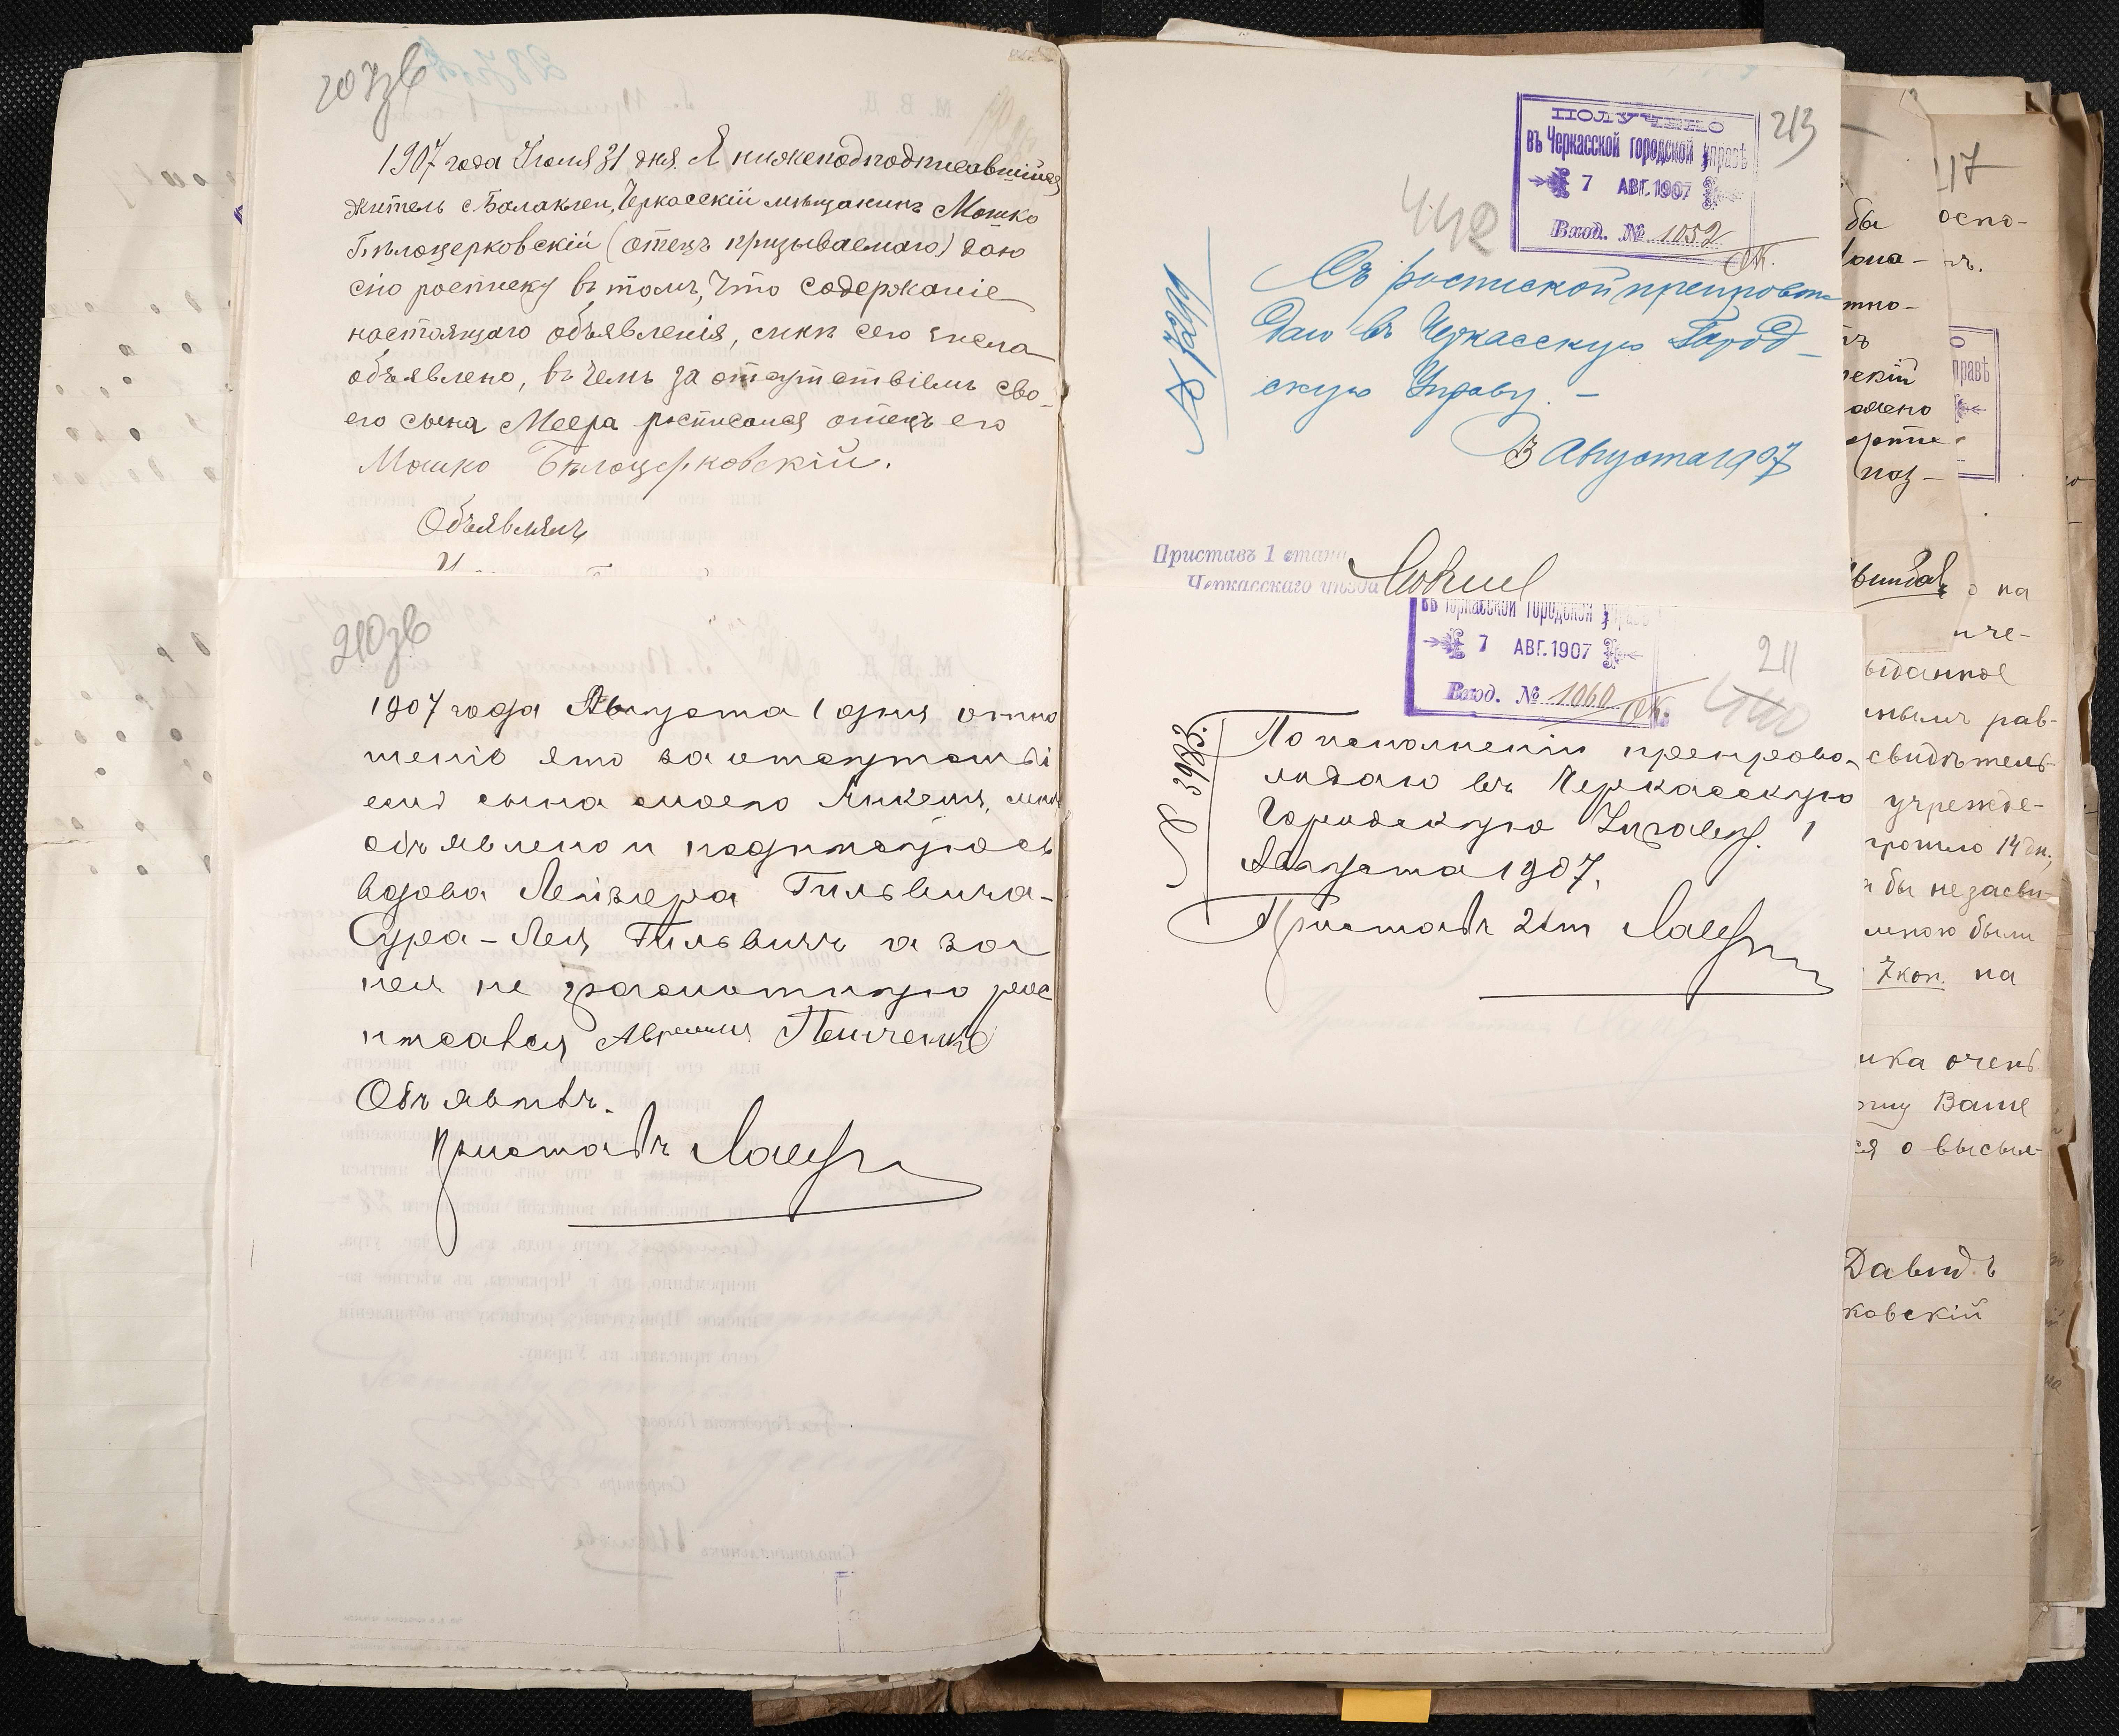 1907 года Июля 31 дня. Я нижеподподписавшийся
житель с Балаклеи, Черкасскій мѣщанинъ Мошко
Бѣлоцерковскій (отецъ призываемаго) даю
сію росписку въ томъ, что содержаніе
настоящаго объявленія, мнѣ сего числа
объявлено, въ чемъ за отсутствіемъ сво-
его сына Меера росписался отецъ его
Мошко Бѣлоцерковскій.
Объявлялъ
210 зв
1907 года Августа 1 дня отно
шеніе это за отсутстві
емъ сына моего Янкеля, мнѣ
объявлено и подписуюсь
вдова Лейзера Гильвича-
Сура-Лея Гильвичъ а за
нея не грамотную рос
писався
Объявилъ.
Приставъ
ПОЛУЧЕНО
въ Черкасской городской управѣ
7 АВГ. 1907
Вход. № 1052
213
442
Съ роспиской препровож
даю въ Черкасскую Город-
скую Управу. -
3 Августа 1907
Приставъ 1 стана
Черкасскаго уѣзда
въ Черкасской городской управѣ
7 АВГ. 1907
Вход. № 1060
211
440
№ 3983.
По исполненіи препрово-
ждаю въ Черкасскую
Городскую Управу. 1
Августа 1907.
Приставъ 2 ст
47
бы
оспо-
екій
поз-
на
иче-
ыданное
рав-
свидѣтель-
учрежде-
прошло 14 дн.,
а бы незасви-
мною были
7 коп. на
очень
Ваше
ся о высыл-
Давидъ
ковскій